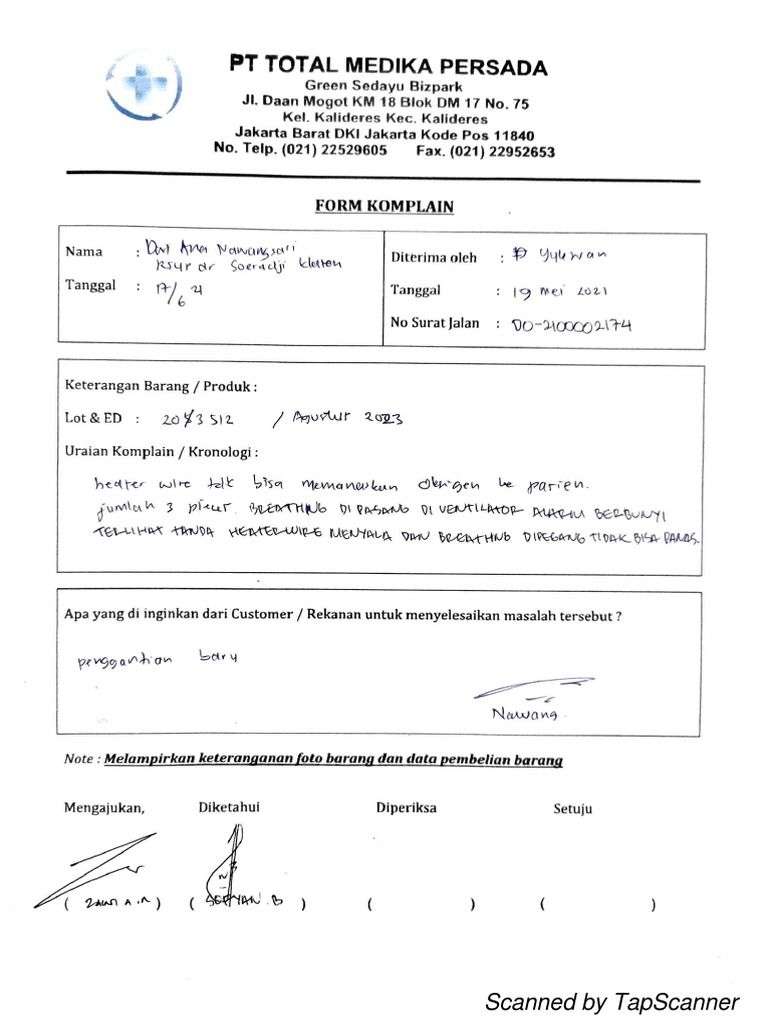 PT TOTAL MEDIKA PERSADA
Green Sedayu Bizpark
Jl. Daan Mogot KM 18 Blok DM 17 No. 75
Kel. Kalideres Kec. Kalideres
Jakarta Barat DKI Jakarta Kode Pos 11840
No. Telp. (021) 22529605 Fax. (021) 22952653
FORM KOMPLAIN
Nama : Dwi Ana Nawangsari
RSUP dr Soeradji Klaten
Tanggal : 17/6 21
Diterima oleh : P Yukwan
Tanggal : 19 mei 2021
No Surat Jalan : DO-2100002174
Keterangan Barang / Produk :
Lot & ED : 2043512 / Agustus 2023
Uraian Komplain / Kronologi :
heater wire tdk bisa memanaskan oksigen ke pasien.
jumlah 3 pieces. BREATHING DI PASANG DI VENTILATOR ALARM BERBUNYI
TERLIHAT TANDA HEATERWIRE MENYALA DAN BREATHNG DIPEGANG TIDAK BISA PANAS.
Apa yang di inginkan dari Customer / Rekanan untuk menyelesaikan masalah tersebut ?
penggantian baru
Nawang.
Note : Melampirkan keteranganan foto barang dan data pembelian barang
Mengajukan, Diketahui Diperiksa Setuju
( A.N ) ( SEPYAN.B ) ( ) ( )
Scanned by TapScanner